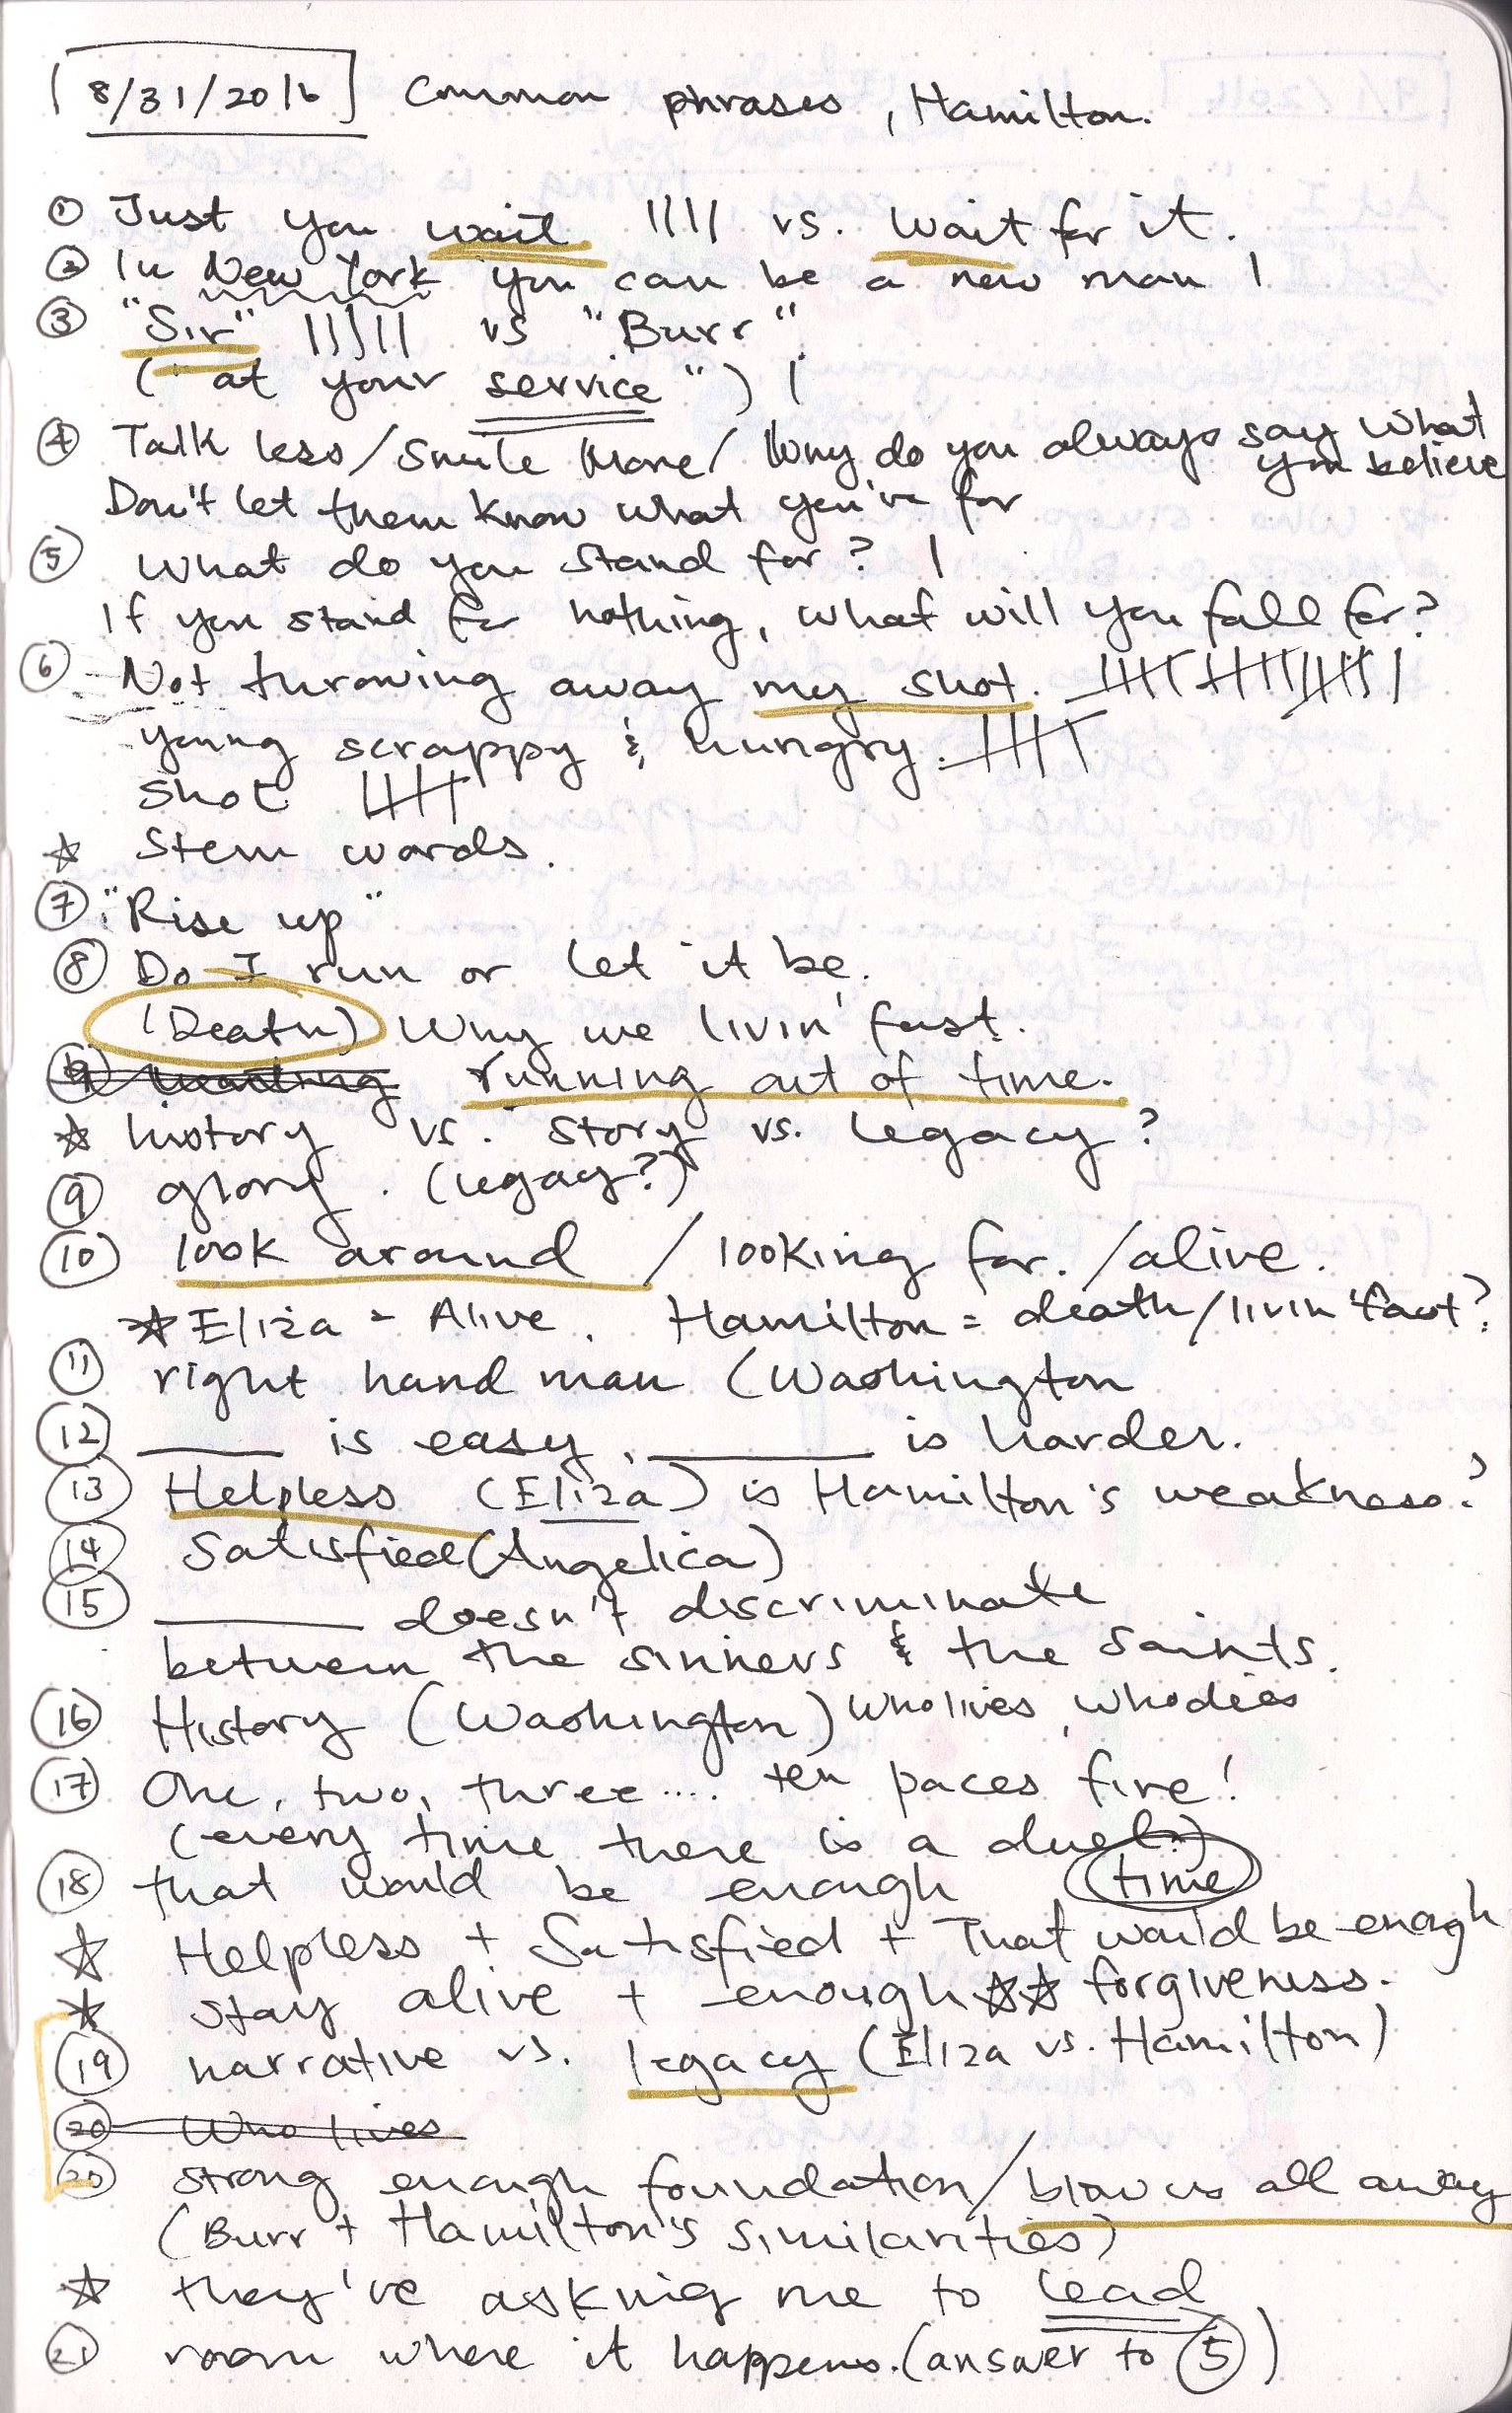 8/31/2016 Common phrases, Hamilton.
① Just you wait |||| vs. Wait for it.
② In New York you can be a new man |
③ "Sir" ||||| vs "Burr"
("at your service") |
④ Talk less/Smile More/ Why do you always say what
you believe
Don't let them know what you're for
⑤ What do you stand for? |
If you stand for nothing, what will you fall for?
⑥ Not throwing away my shot. |||| |||| |||| |
young scrappy & hungry. ||||
shot ||||
☆ Stem words.
⑦ "Rise up"
⑧ Do I run or let it be.
(Death) Why we livin' fast.
running out of time.
☆ history vs. story vs. legacy?
⑨ glory. (legacy?)
⑩ look around / looking for. /alive.
☆ Eliza = Alive. Hamilton = death/livin' fast?
⑪ right hand man (Washington
⑫ ____ is easy, ____ is harder.
⑬ Helpless (Eliza) is Hamilton's weakness?
⑭ Satisfied (Angelica)
⑮ ____ doesn't discriminate
between the sinners & the saints.
⑯ History (Washington) who lives, who dies
⑰ One, two, three.... ten paces fire!
(every time there is a duel.)
⑱ that would be enough (time)
☆ Helpless + Satisfied + That would be enough
☆ stay alive + enough ☆☆ forgiveness.
⑲ narrative vs. legacy (Eliza vs. Hamilton)
20 Who lives
⑳ strong enough foundation/blow us all away
(Burr + Hamilton's similarities)
☆ they're asking me to lead
㉑ room where it happens. (answer to ⑤)